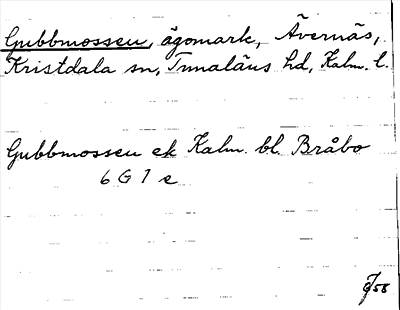 Gubbmossen, ägomark, Ävernäs,
Kristdala sn, Tunaläns hd, Kalm. l.
Gubbmossen ek Kalm. bl. Bråbo
6 G 1 e